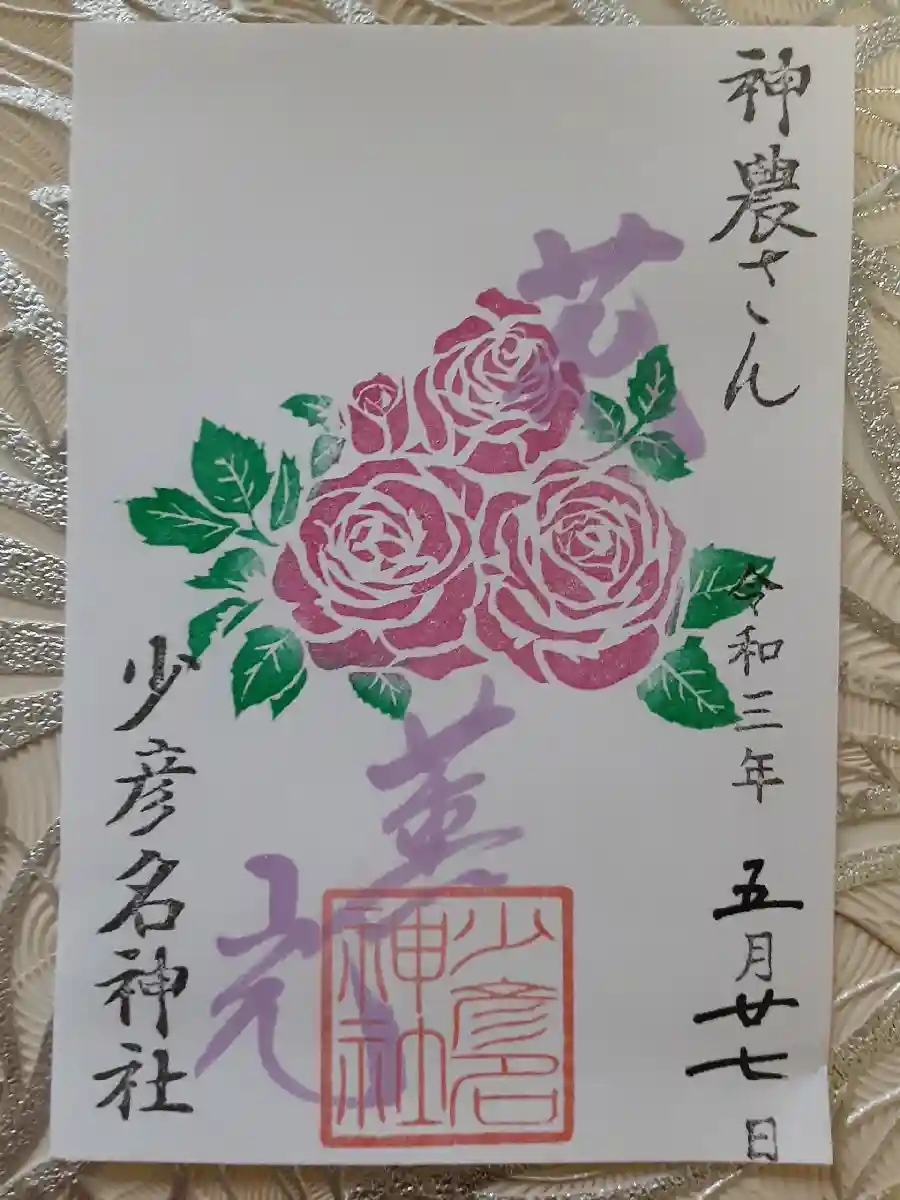 神農さん
令和三年 五月廿七日
花
薫
少彦名
神社
少彦名神社